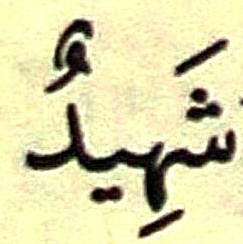 شَهِيدٌ